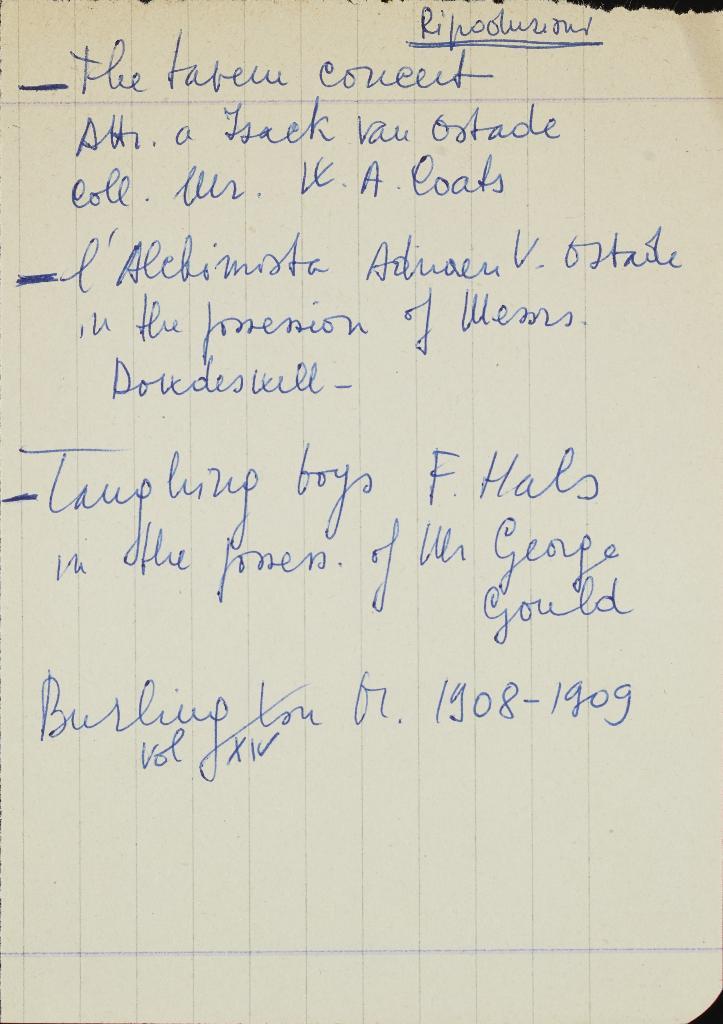 Riproduzioni
- The tavern concert
Attr. a Isack van Ostade
coll. Mr. W. A. Coats
- l'Alchimista Adriaen V. Ostade
in the possession of Messrs.
Dowdeswell -
- Laughing boys F. Hals
in the possess. of Mr George
Gould
Burlington M. 1908-1909
vol XIV